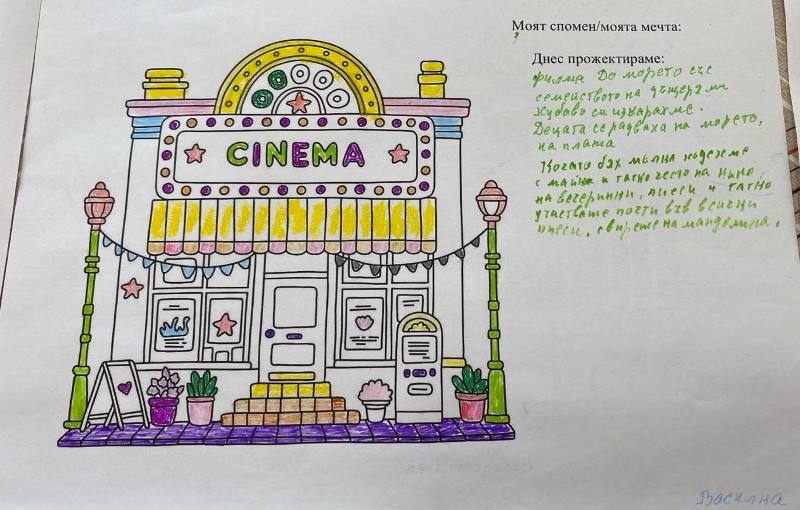 Моят спомен/моята мечта:
Днес прожектираме:
филма До морето със
семейството на дъщеря ми
Хубаво си изкарахме.
Децата се радваха на морето,
на плажа
Когато бях малка ходехме
с майка и татко често на кино,
на вечеринки, пиеси и татко
участваше почти във всички
пиеси, свиреше на мандолина.
CINEMA
Василна